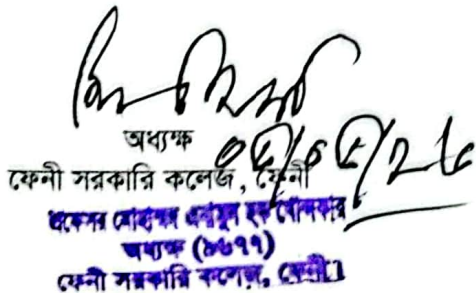 অধ্যক্ষ
ফেনী সরকারি কলেজ, ফেনী
প্রফেসর মোহাম্মদ এনামুল হক খোন্দকার
অধ্যক্ষ (৯৬৭৭)
ফেনী সরকারি কলেজ, ফেনী।